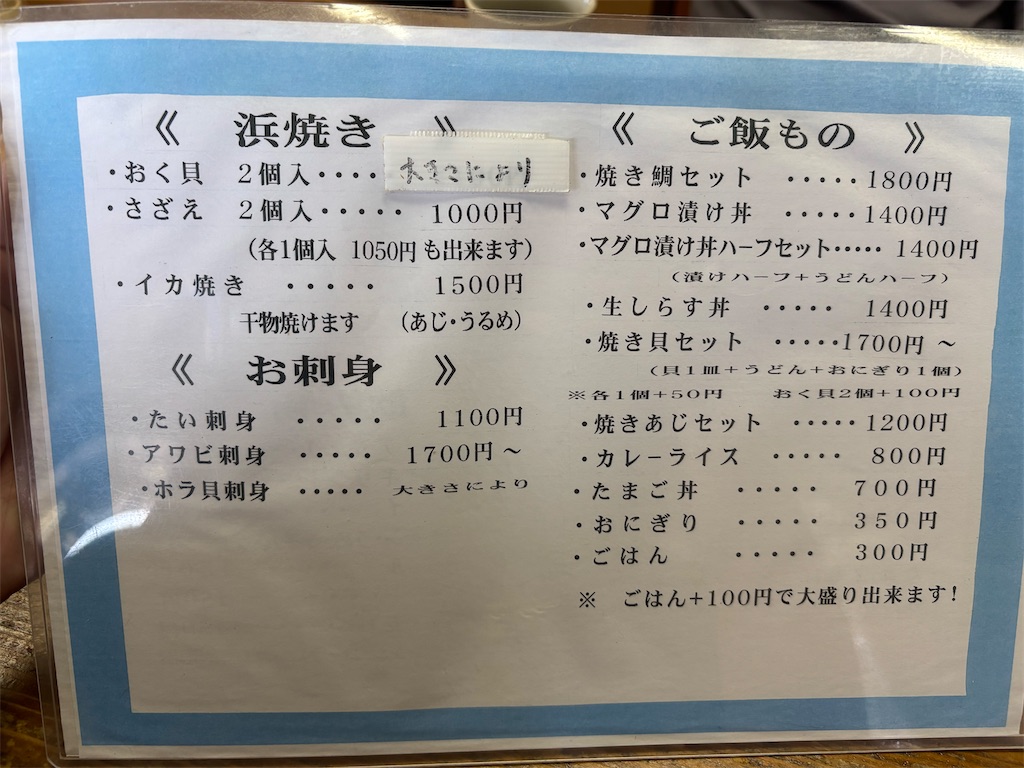 《 浜焼き 》
・おく貝 2個入・・・・ 大きさにより
・さざえ 2個入・・・・・ 1000円
(各1個入 1050円も出来ます)
・イカ焼き ・・・・・ 1500円
干物焼けます (あじ・うるめ)
《 お刺身 》
・たい刺身 ・・・・・ 1100円
・アワビ刺身 ・・・・・ 1700円～
・ホラ貝刺身 ・・・・・ 大きさにより
《 ご飯もの 》
・焼き鯛セット ・・・・・1800円
・マグロ漬け丼 ・・・・・1400円
・マグロ漬け丼ハーフセット・・・・・ 1400円
(漬けハーフ+うどんハーフ)
・生しらす丼 ・・・・・ 1400円
・焼き貝セット ・・・・・1700円～
(貝1皿+うどん+おにぎり1個)
※各1個+50円 おく貝2個+100円
・焼きあじセット ・・・・・1200円
・カレーライス ・・・・・ 800円
・たまご丼 ・・・・・ 700円
・おにぎり ・・・・・ 350円
・ごはん ・・・・・ 300円
※ ごはん+100円で大盛り出来ます!